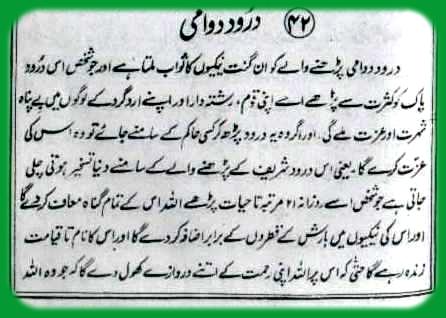 (۴۲) درُود دوامی
درود دوامی پڑھنے والے کو ان گنت نیکیوں کا ثواب ملتا ہے اور جو شخص اس درُود
پاک کو کثرت سے پڑھے اسے اپنی قوم، رشتہ دار اور اپنے ارد گرد کے لوگوں میں بے پناہ
شہرت اور عزت ملے گی۔ اور اگر وہ یہ درود پڑھ کر کسی حاکم کے سامنے جائے تو وہ اس کی
عزت کرے گا۔ یعنی اس درود شریف کے پڑھنے والے کے سامنے دنیا تسخیر ہوتی چلی
جاتی ہے جو شخص اسے روزانہ ۲۱ مرتبہ تا حیات پڑھے اللہ اس کے تمام گناہ معاف کر دے گا
اور اس کی نیکیوں میں بارش کے قطروں کے برابر اضافہ کر دے گا اور اس کا نام تا قیامت
زندہ رہے گا حتٰی کہ اس پر اللہ اپنی رحمت کے اتنے دروازے کھول دے گا کہ جو وہ اللہ